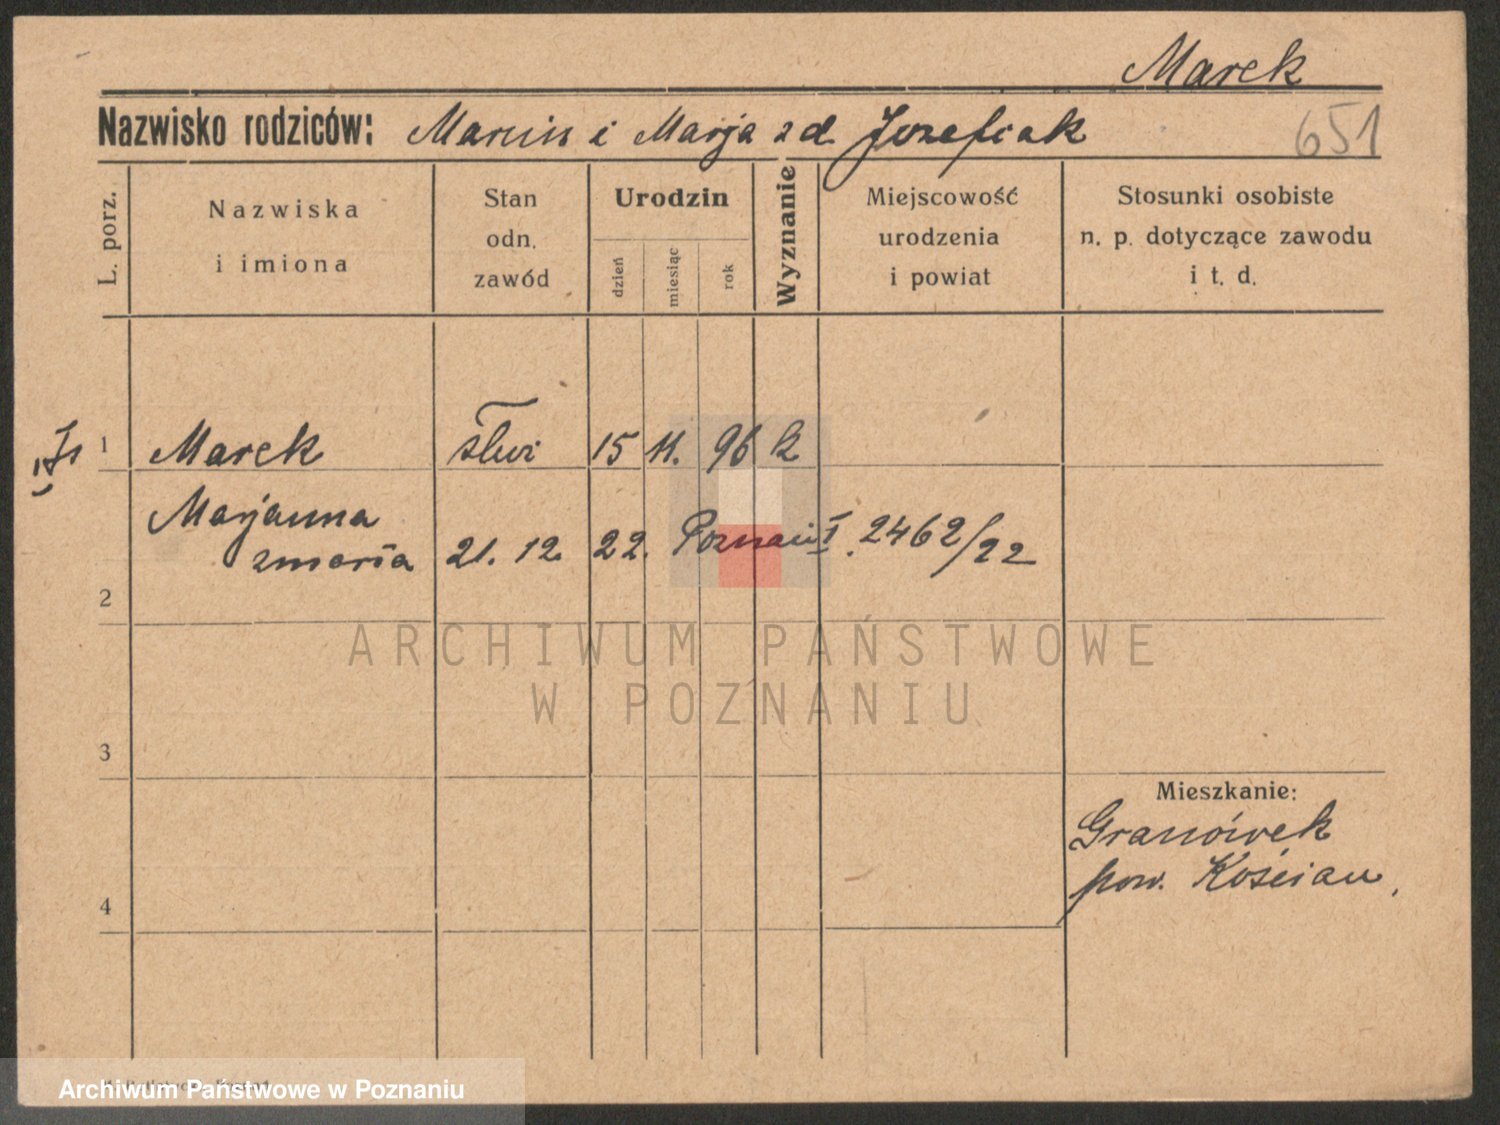 Marek
Nazwisko rodziców: Marcin i Marja z d. Józefiak
651
L. porz.
Nazwiska
i imiona
Stan
odn.
zawód
Urodzin
dzień
miesiąc
rok
Wyznanie
Miejscowość
urodzenia
i powiat
Stosunki osobiste
n. p. dotyczące zawodu
i t. d.
1 Marek 15 11. 96 k
Marjanna
zmarła 21. 12. 22. Poznań I. 2462/22
2
3
4
Mieszkanie:
Granówek
pow. Kościan.
ARCHIWUM PAŃSTWOWE
W POZNANIU
Archiwum Państwowe w Poznaniu